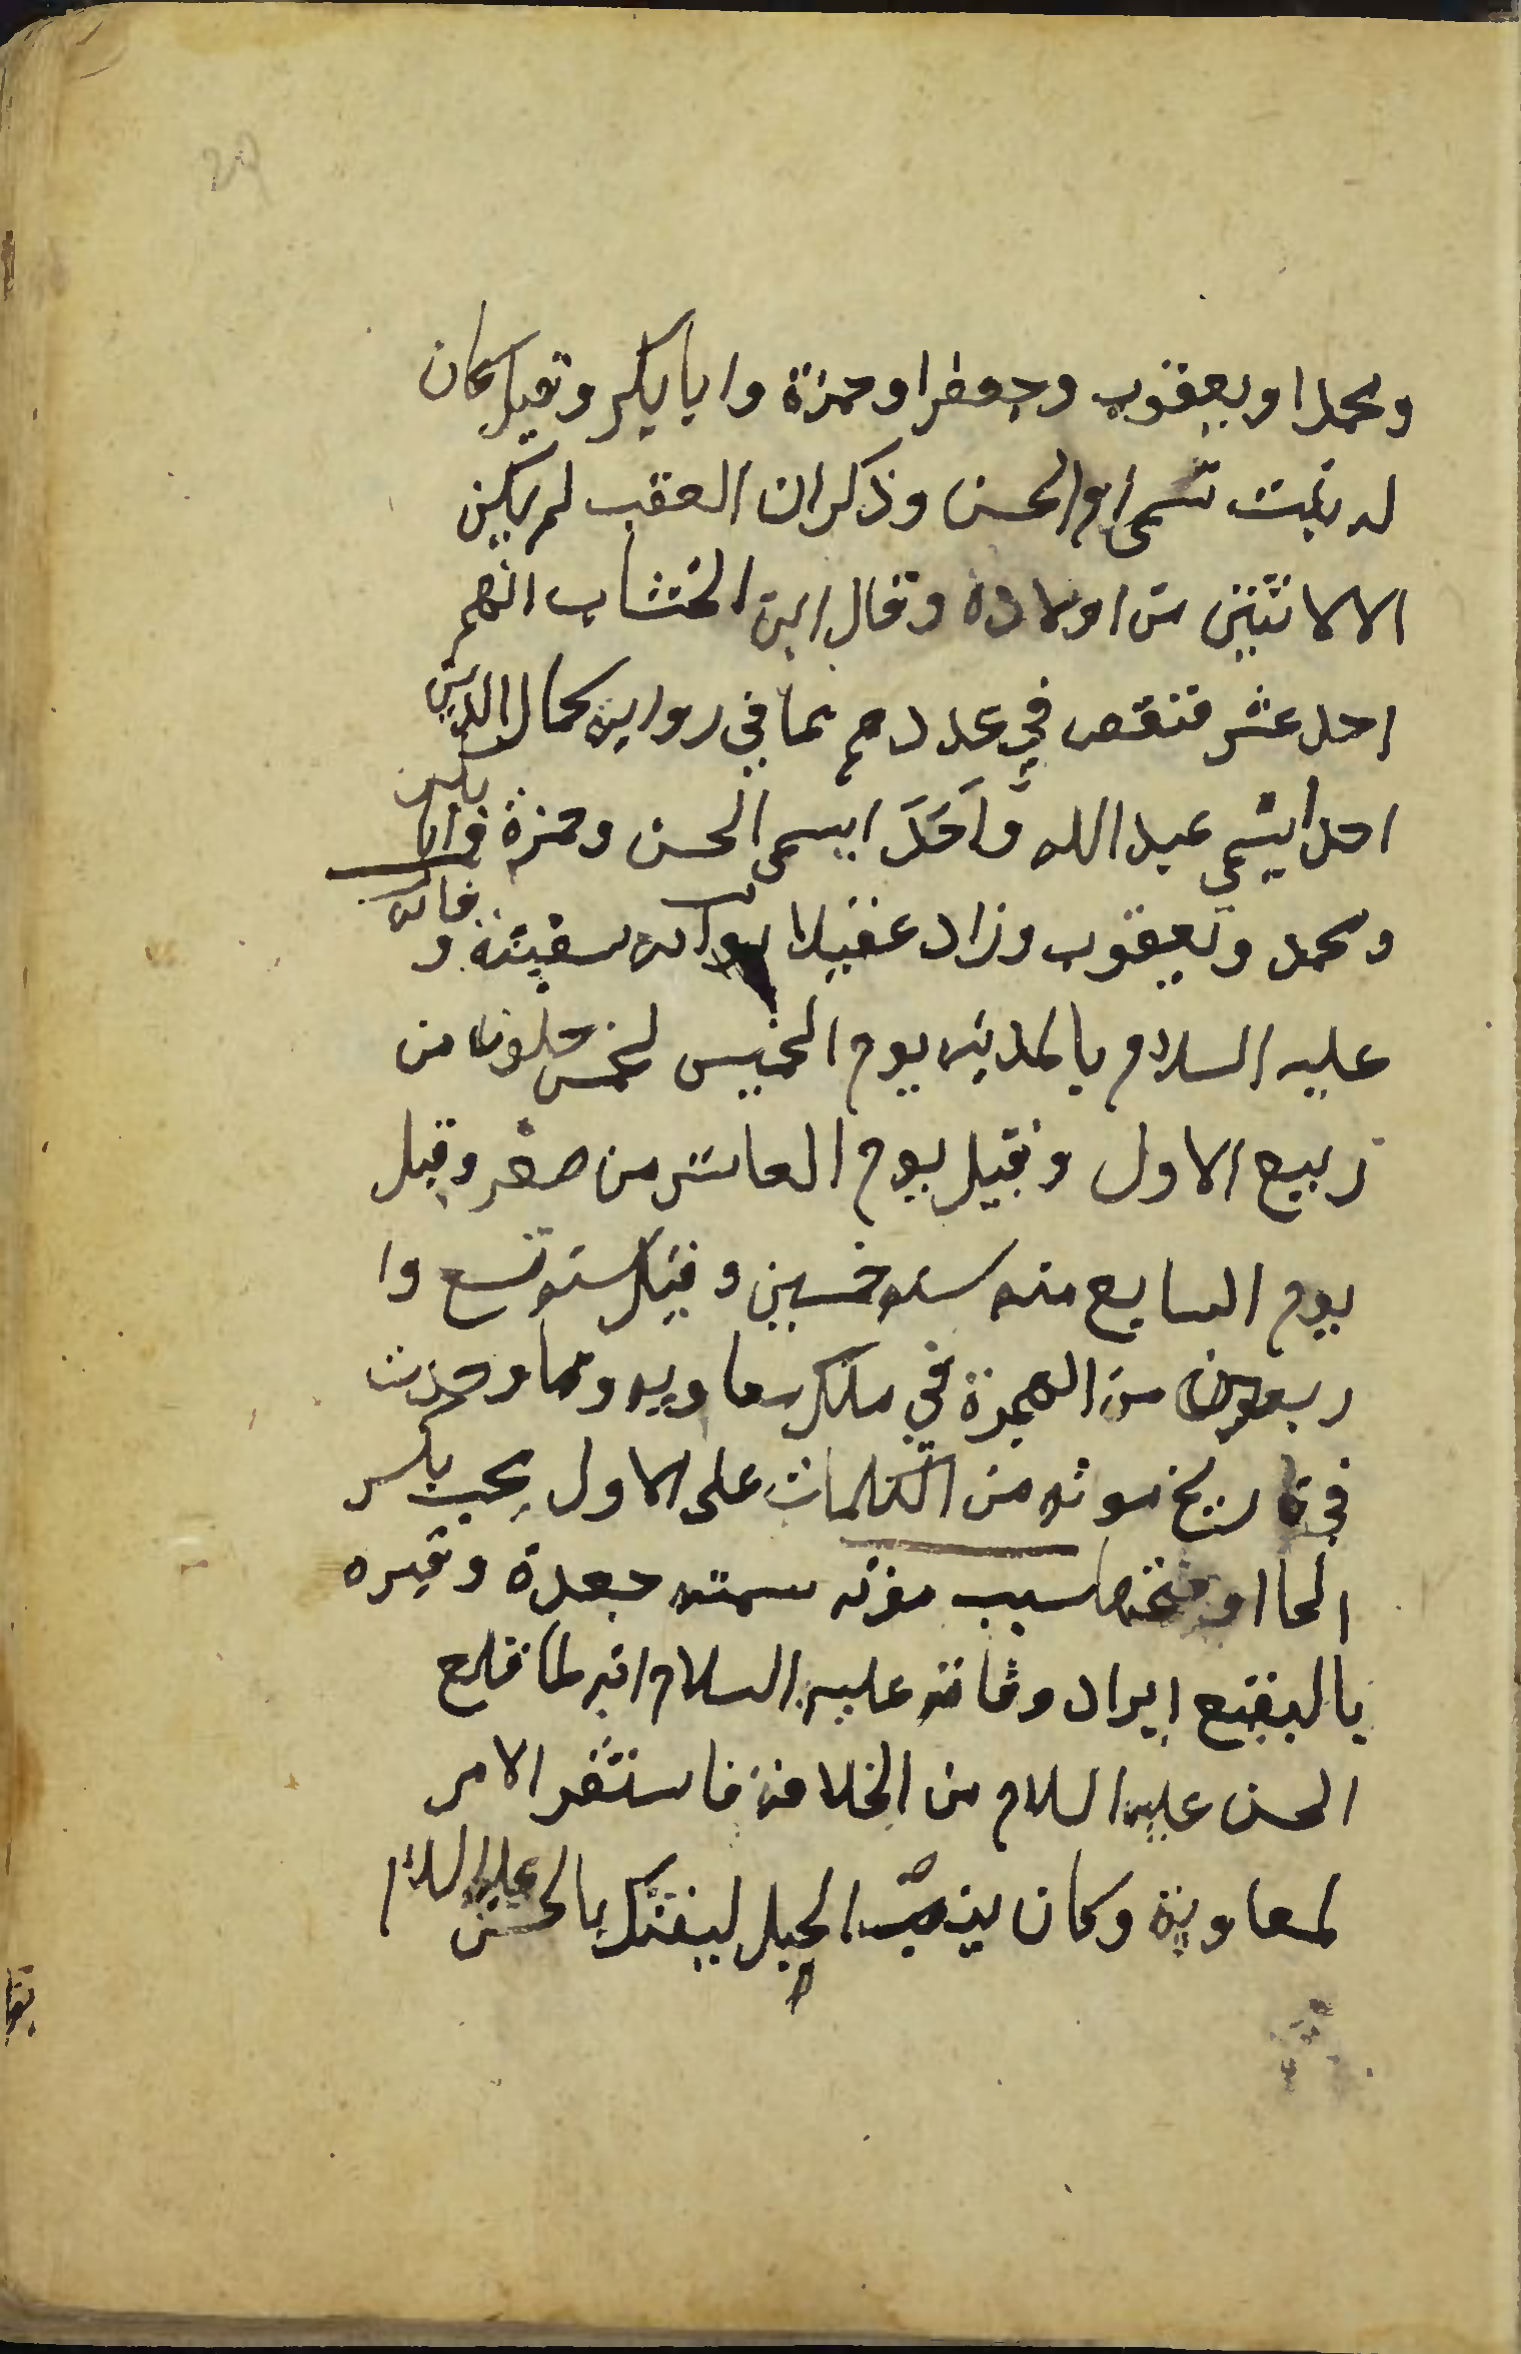 ومحمدا ويعقوب وجعفرا وحمزة وابا بكر وقيل كان
له بنت تسمى ام الحسن وذكر ان العقب لم يكن
الا لاثنين من اولاده وقال ابن الخشاب انهم
احد عشر فنقص في عددهم عما في رواية كمال الدين
احدا يسمى عبد الله واحدا يسمى الحسن وحمزة وابا بكر
ومحمد ويعقوب وزاد عقيلا وفاته
عليه السلام بالمدينه يوم الخميس لخمس خلون من
ربيع الاول وقيل يوم العاشر من صفر وقيل
يوم السابع منه سنه خمسين وقيل سنه تسع وا
ربعون من الهجرة في ملك معاويه ومما وجدت
في تاريخ موته من الكلمات على الاول يحب بكسر
الحا او فتحها سبب موته سمته جعدة وقبره
بالبقيع ايراد وفاته عليه السلام انه لما خلع
الحسن عليه السلام من الخلافة فاستقر الامر
لمعاوية وكان ينصب الحيل ليفتك بالحسن عليه السلام